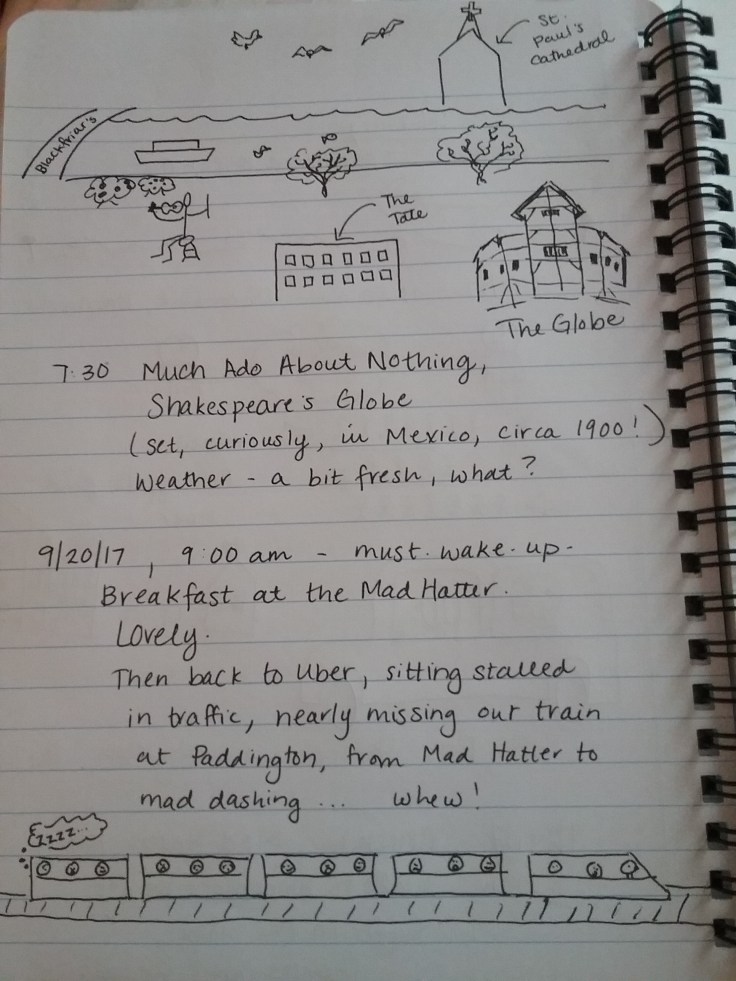 St.
Paul's
Cathedral
Blackfriar's
The
Tate
The Globe
7:30 Much Ado About Nothing,
Shakespeare's Globe
(set, curiously, in Mexico, circa 1900!)
Weather - a bit fresh, what?
9/20/17, 9:00 am - must. wake. up.
Breakfast at the Mad Hatter.
Lovely.
Then back to Uber, sitting stalled
in traffic, nearly missing our train
at Paddington, from Mad Hatter to
mad dashing ... whew!
zzzz...